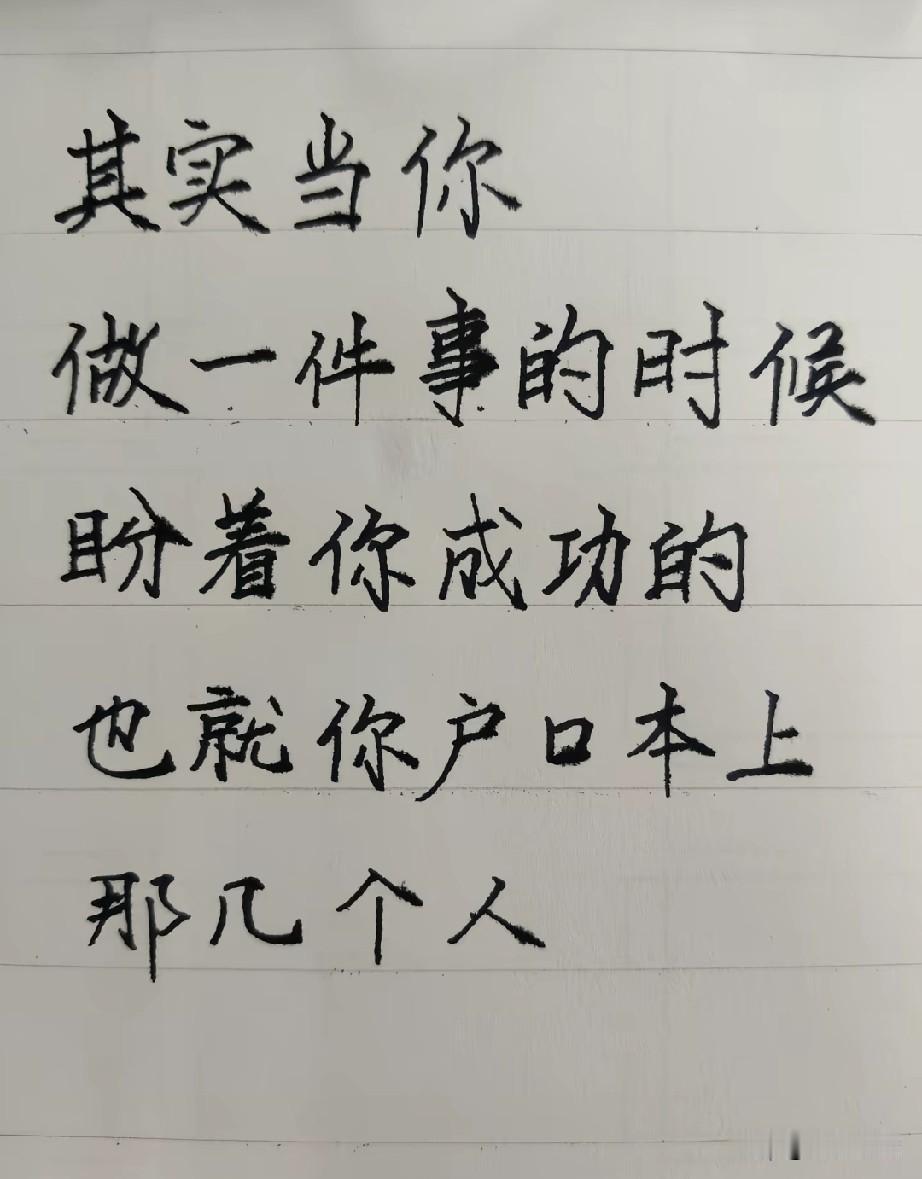 其实当你
做一件事的时候
盼着你成功的
也就你户口本上
那几个人